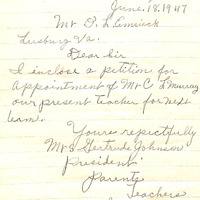 June. 18, 1947
Mr
Leesburg Va.
Dear sir
I inclose a petition for
appointment of Mr C L Murray
our present teacher for next
term.
Yours repictfully
Mrs Gertrude Johnson
President
Parents
Teachers